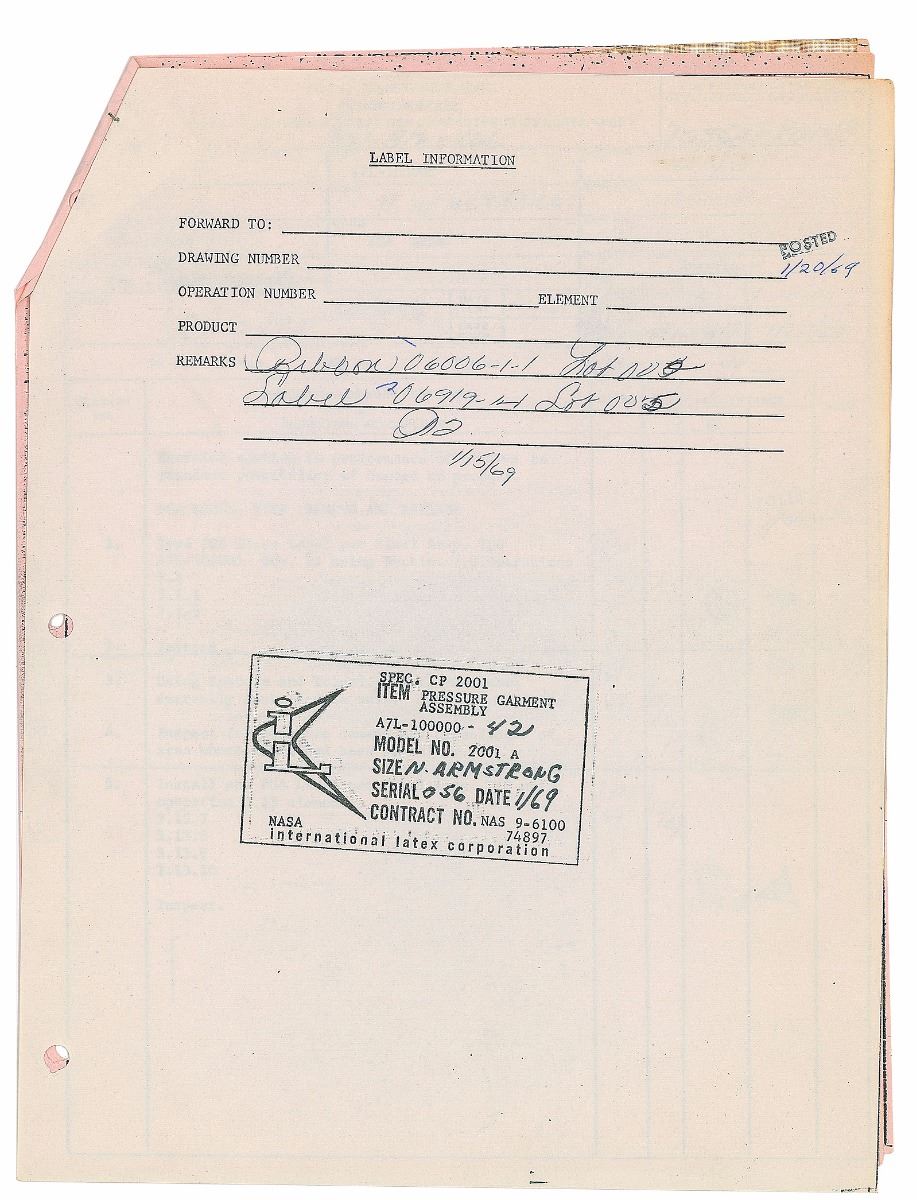 LABEL INFORMATION
FORWARD TO:
POSTED
DRAWING NUMBER
1/20/69
OPERATION NUMBER ELEMENT
PRODUCT
REMARKS Ribbon 06006-1-1 Lot 005
Label 06919-14 Lot 005
1/15/69
SPEC. CP 2001
ITEM PRESSURE GARMENT
ASSEMBLY
A7L-100000 - 42
MODEL NO. 2001 A
SIZE N. ARMSTRONG
SERIAL 056 DATE 1/69
CONTRACT NO. NAS 9-6100
NASA 74897
international latex corporation